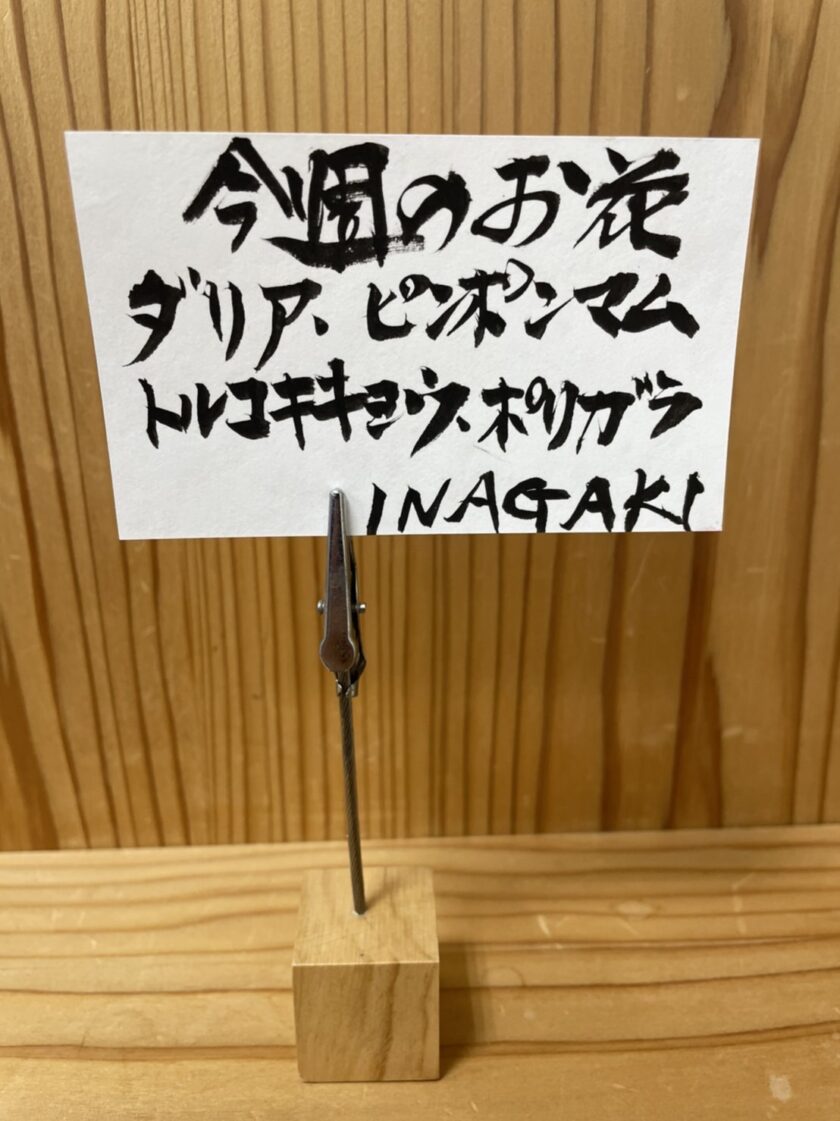 今週のお花
ダリア、ピンポンマム
トルコキキョウ、ポリガラ
INAGAKI